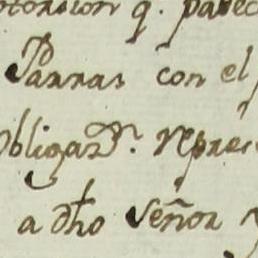 q. parec
Parras con el
Obligaz.n repre
a dho Señor